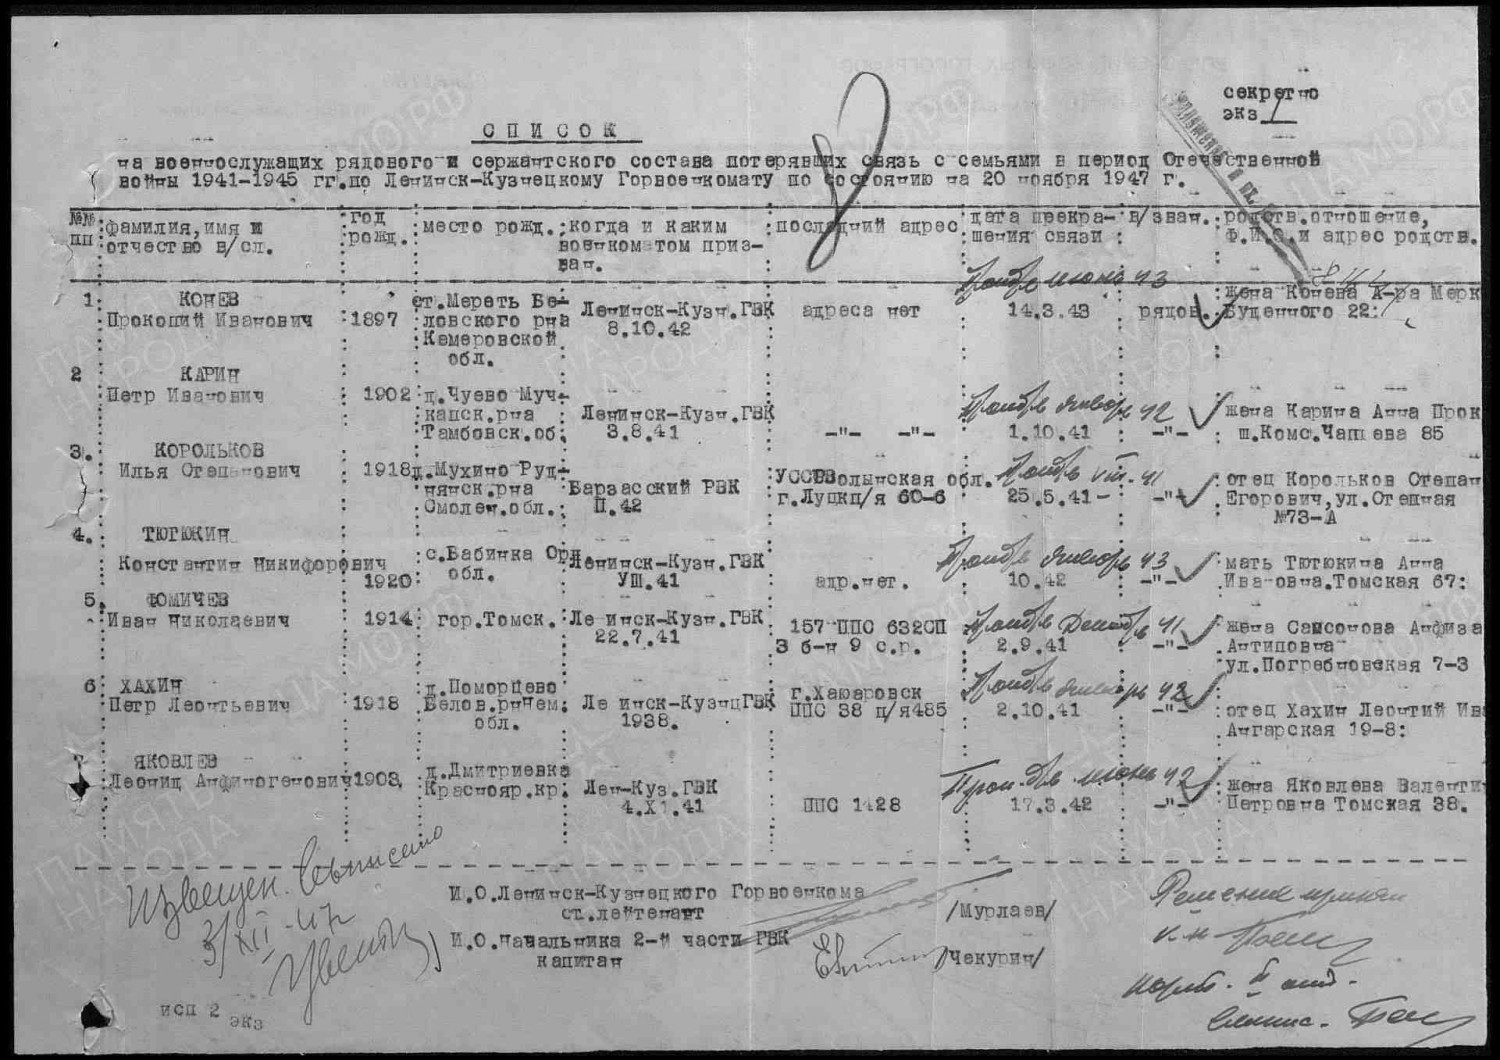 секретно
экз 1
СПИСОК
на военнослужащих рядового и сержантского состава потерявших связь с семьями в период Отечественной
войны 1941-1945 гг.по Ленинск-Кузнецкому Горвоенкомату по состоянию на 20 ноября 1947 г.
№№ пп
фамилия,имя и отчество в/сл.
год рожд.
место рожд.
когда и каким военкоматом призван.
последний адрес
дата прекра-щения связи
в/зван.
родств.отношение, Ф.И.О.и адрес родств.
1. КОНЕВ
Прокопий Иванович
1897
ст.Мереть Бе-
ловского рна
Кемеровской
обл.
Ленинск-Кузн.ГВК
8.10.42
адреса нет
июнь 43
14.3.43
рядов.
жена Конева К-ра Мерк
Буденного 22:
2 КАРИН
Петр Иванович
1902
д.Чуево Муч-
капск.рна
Тамбовск.об.
Ленинск-Кузн.ГВК
3.8.41
-"- -"-
январь 42
1.10.41
-"-
жена Карина Анна Прок
ш.Комс.Чапаева 85
3. КОРОЛЬКОВ
Илья Степанович
1918
д.Мухино Руд-
нянск.рна
Смолен.обл.
Барзасский РВК
П.42
УССР Волынская обл.
г.Луцк п/я 60-6
VIII.41
25.5.41-
-"-
отец Корольков Степан
Егорович,ул.Степная
№73-А
4. ТЮТЮКИН
Константин Никифорович
1920
с.Бабинка Орл.
обл.
Ленинск-Кузн.ГВК
УШ.41
адр.нет.
январь 43
10.42
-"-
мать Тютюкина Анна
Ивановна.Томская 67:
5. ФОМИЧЕВ
Иван Николаевич
1914
гор.Томск.
Ле инск-Кузн.ГВК
22.7.41
157 ППС 632СП
3 б-н 9 с.р.
41
2.9.41
-"-
жена Самсонова Анфиза
Антиповна
ул.Погребновская 7-3
6 ХАХИН
Петр Леонтьевич
1918
д.Поморцево
Белов.рнКем.
обл.
Ле инск-КузнцГВК
1938.
г.Хабаровск
ППС 38 п/я485
январь 42
2.10.41
-"-
отец Хахин Леонтий Ива
Ангарская 19-8:
7 ЯКОВЛЕВ
Леонид Анфиногенович
1903,
д.Дмитриевка
Краснояр.кр.
Лен-Куз.ГВК
4.Х1.41
ППС 1428
июнь 42
17.3.42
-"-
жена Яковлева Валенти
Петровна Томская 38.
И.О.Ленинск-Кузнецкого Горвоенкома
ст.лейтенант
/Мурлаев/
И.О.начальника 2-й части ГВК
капитан
/Чекурин/
Извещен.
3/XII-47г
Решение принял
исп 2 экз